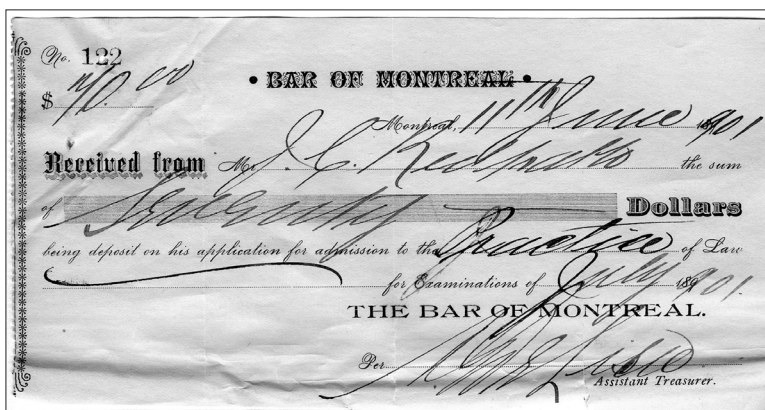 No. 122
$ 70.00
• BAR OF MONTREAL •
Montreal, 11th June 1901
Received from Mr J. C. Redpath the sum
of Seventy Dollars
being deposit on his application for admission to the Practice of Law
for Examinations of July 1901.
THE BAR OF MONTREAL.
Per
Assistant Treasurer.